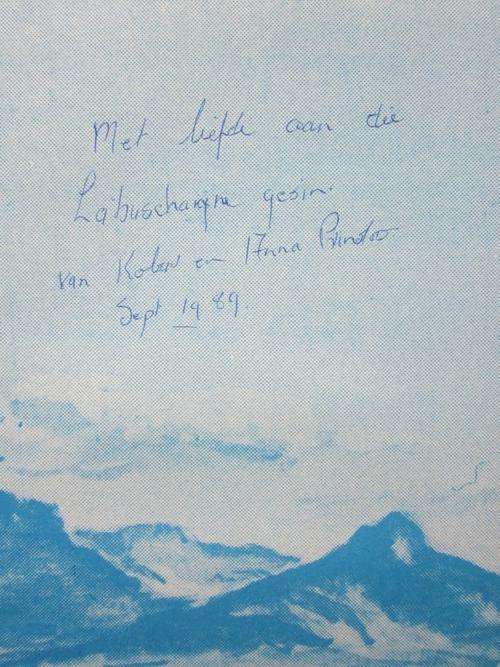 Met liefde aan die
Labuschangne gesin.
van Kobus en Anna Prinsloo
Sept 1989.